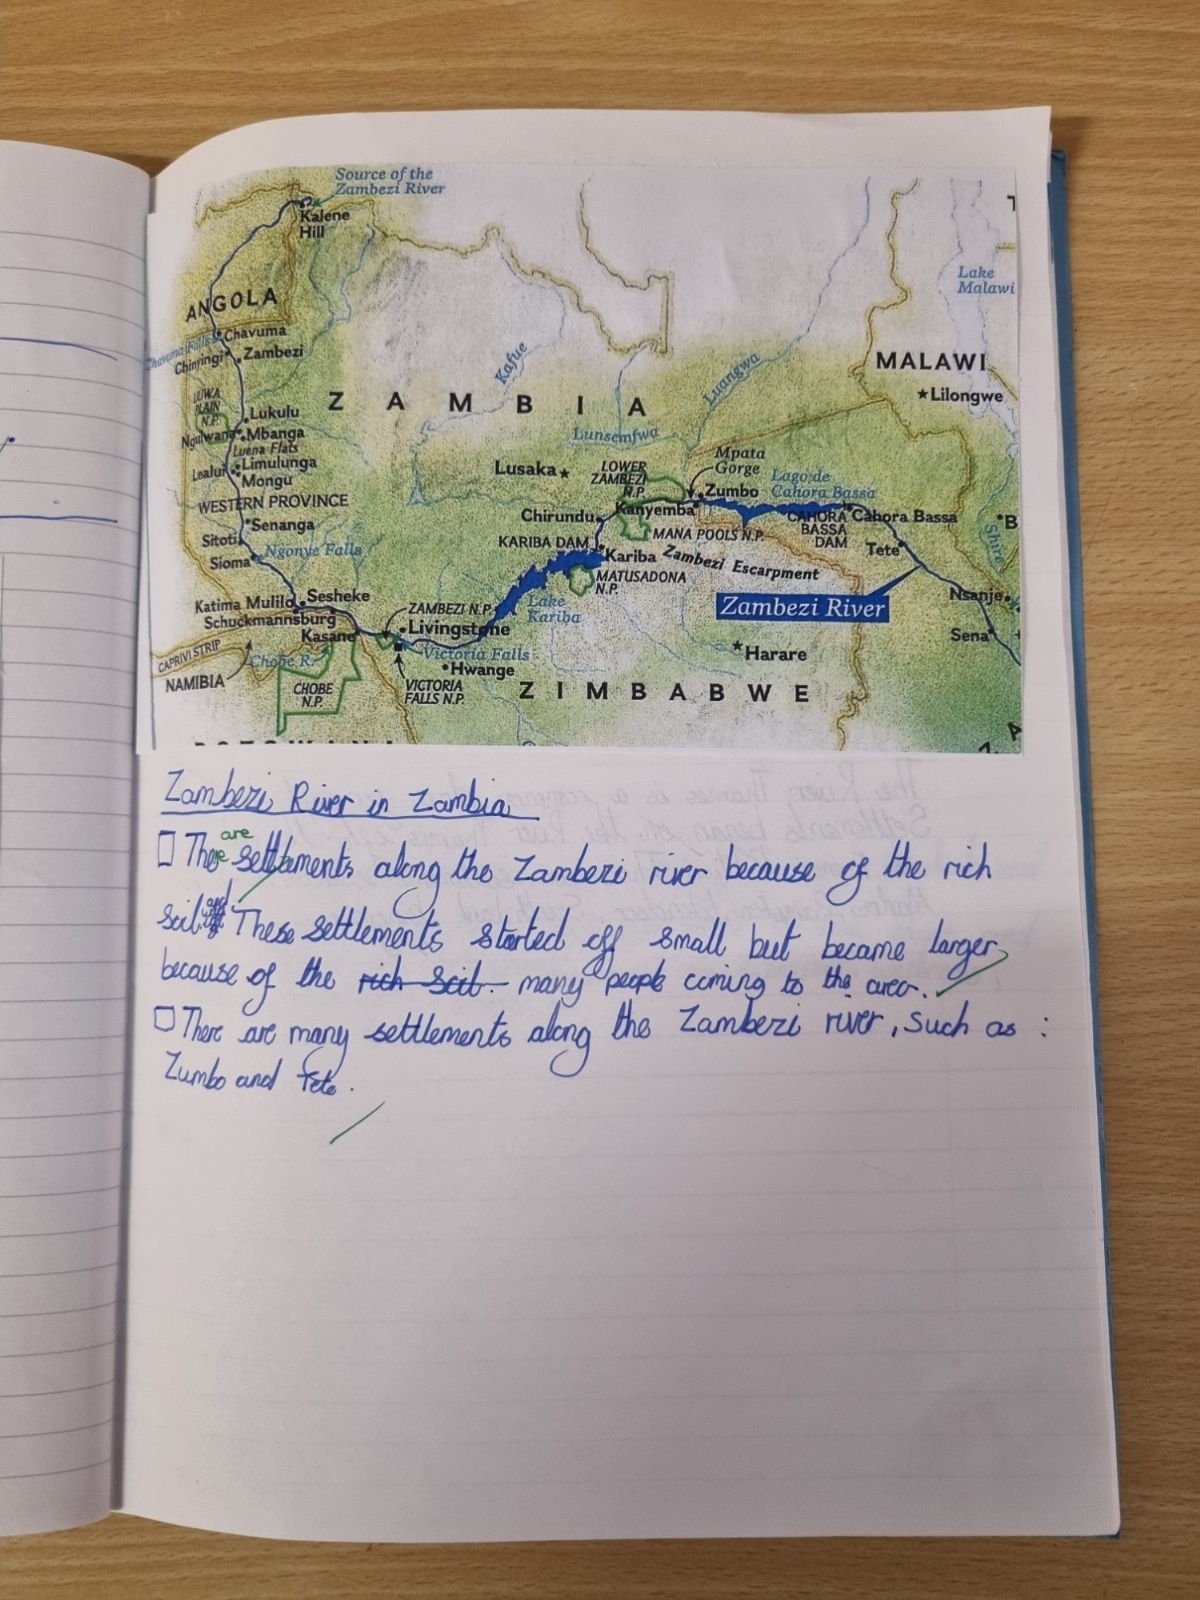 Source of the
Zambezi River
Kalene
Hill
Lake
Malawi
ANGOLA
Chavuma Falls
Chavuma
Chinyingi
Zambezi
Kafue
Luangwa
MALAWI
Lilongwe
LIUWA
PLAIN
N.P.
ZAMBIA
Lukulu
Ngulwana
Mbanga
Luena Flats
Lealui
Limulunga
Mongu
Lunsemfwa
Mpata
Gorge
Lusaka
LOWER
ZAMBEZI
N.P.
Zumbo
Lago de
Cahora Bassa
WESTERN PROVINCE
Senanga
Chirundu
Kanyemba
CAHORA
BASSA
DAM
Cahora Bassa
Sitoti
Ngonye Falls
Sioma
KARIBA DAM
Kariba
MANA POOLS N.P.
Zambezi Escarpment
Tete
Shire
MATUSADONA
N.P.
Katima Mulilo
Sesheke
Schuckmannsburg
Kasane
ZAMBEZI N.P.
Livingstone
Lake
Kariba
Zambezi River
Nsanje
Sena
CAPRIVI STRIP
Chobe R.
Victoria Falls
Hwange
Harare
NAMIBIA
CHOBE
N.P.
VICTORIA
FALLS N.P.
ZIMBABWE
Zambezi River in Zambia
are
There settlements along the Zambezi river because of the rich
soil. These settlements started off small but became larger
because of the rich soil. many people coming to the area.
There are many settlements along the Zambezi river, such as :
Zumbo and Tete.